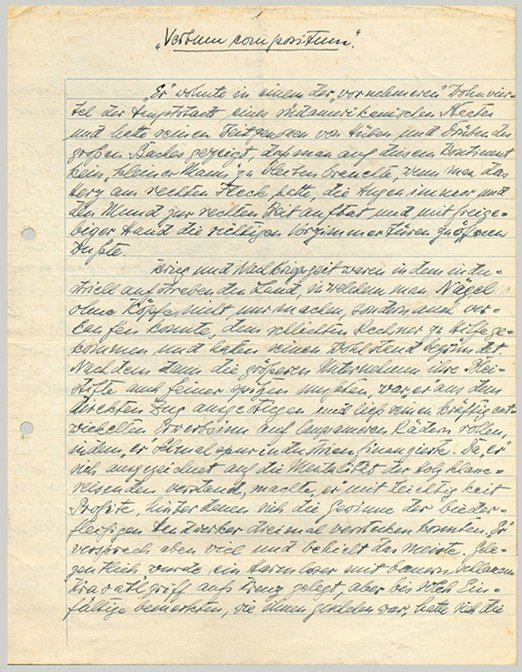 1
„Verbum compositum".
„Er" wohnte in einem der „vornehmeren" Wohnvier-
tel der Hauptstadt eines südamerikanischen Staates
und hatte seinen Zeitgenossen von hüben und drüben des
großen Baches gezeigt, dass man auf diesem Kontinent
kein „kleiner Mann" zu bleiben brauchte, wenn man das
Herz am rechten Fleck hatte, die Augen immer und
den Mund zur rechten Zeit auftat und mit freige-
biger Hand die richtigen Vorzimmertüren zu öffnen
wußte.
Krieg und Nachkriegszeit waren in dem indu-
striell aufstrebenden Land, in welchem man Nägel
ohne Köpfe nicht nur machen, sondern auch ver-
kaufen konnte, dem schlichten Rechner zu Hilfe ge-
kommen und hatten seinen Wohlstand begründet.
Nachdem dann die größeren Unternehmen ihre Blei-
stifte auch feiner spitzen mußten, war „er" aus dem
direkten Zug ausgestiegen und ließ seinen kräftig ent-
wickelten Erwerbssinn auf langsameren Rädern rollen,
indem „er" Schmalspurindustrien finanzierte. Da „er"
sich ausgezeichnet auf die Mentalität der Holzklasse-
reisenden verstand, machte „er" mit Leichtigkeit
Profite, hinter denen sich die Gewinne der bieder-
fleißigen Handwerker dreimal verstecken konnten. Er
versprach eben viel und behielt das Meiste. Gele-
gentlich wurde ein Harmloser mit bauernschlauem
Krawattgriff aufs Kreuz gelegt, aber bis solch Ein-
fältige bemerkten, wie ihnen geschehen war, hatte sich die